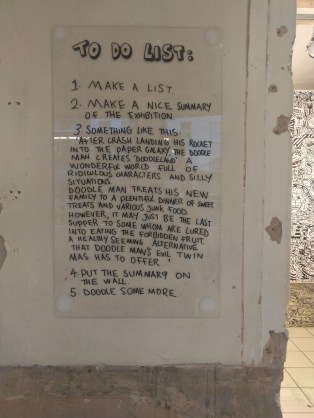 TO DO LIST:
1. MAKE A LIST
2. MAKE A NICE SUMMARY
OF THE EXHIBITION.
3 SOMETHING LIKE THIS:
"AFTER CRASH LANDING HIS ROCKET
INTO THE PAPER GALAXY, THE DOODLE
MAN CREATES 'DOODLELAND' A
WONDERFUL WORLD FULL OF
RIDICULOUS CHARACTERS AND SILLY
SITUATIONS.
DOODLE MAN TREATS HIS NEW
FAMILY TO A PLENTIFUL DINNER OF SWEET
TREATS AND VARIOUS JUNK FOOD.
HOWEVER, IT MAY JUST BE THE LAST
SUPPER TO SOME WHOM ARE LURED
INTO EATING THE FORBIDDEN FRUIT.
A HEALTHY SEEMING ALTERNATIVE
THAT DOODLE MAN'S EVIL TWIN
MAS HAS TO OFFER..."
4. PUT THE SUMMARY ON
THE WALL.
5. DOODLE SOME MORE